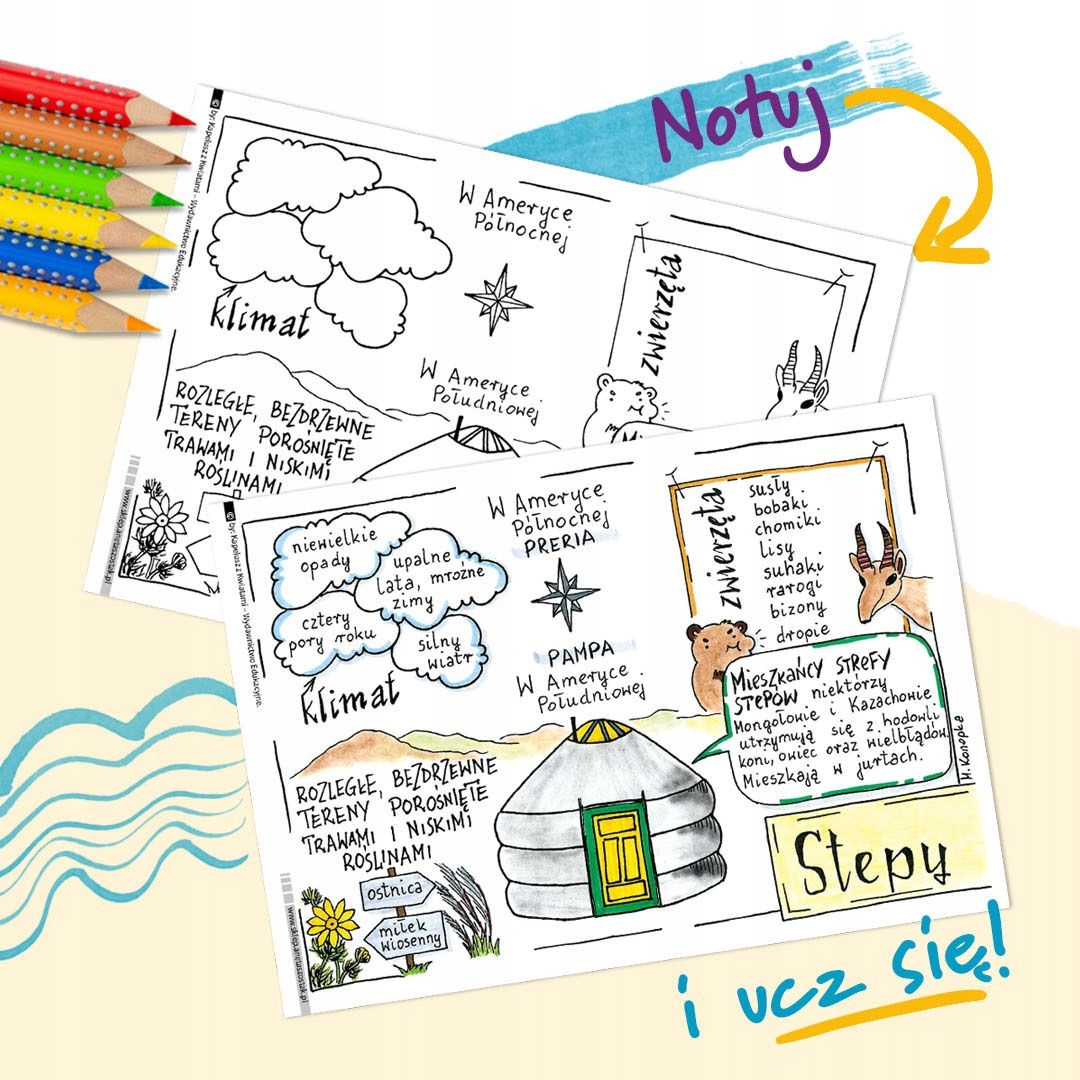 Notuj
© by: Kapelusz z Kwiatami – Wydawnictwo Edukacyjne.
klimat
W Ameryce
Północnej
W Ameryce
Południowej
zwierzęta
ROZLEGŁE, BEZDRZEWNE
TERENY POROŚNIĘTE
TRAWAMI I NISKIMI
ROŚLINAMI
© by: Kapelusz z Kwiatami – Wydawnictwo Edukacyjne.
niewielkie
opady
upalne
lata, mroźne
zimy
cztery
pory roku
silny
wiatr
klimat
W Ameryce
Północnej
PRERIA
PAMPA
W Ameryce
Południowej
zwierzęta
susły
bobaki
chomiki
lisy
suhaki
rarogi
bizony
dropie
MIESZKAŃCY STREFY
STEPÓW niektórzy
Mongołowie i Kazachowie
utrzymują się z hodowli
koni, owiec oraz wielbłądów.
Mieszkają w jurtach.
M. Konopka
ROZLEGŁE, BEZDRZEWNE
TERENY POROŚNIĘTE
TRAWAMI I NISKIMI
ROŚLINAMI
ostnica
miłek
wiosenny
Stepy
www.sklep.anetaszostak.pl
i ucz się!